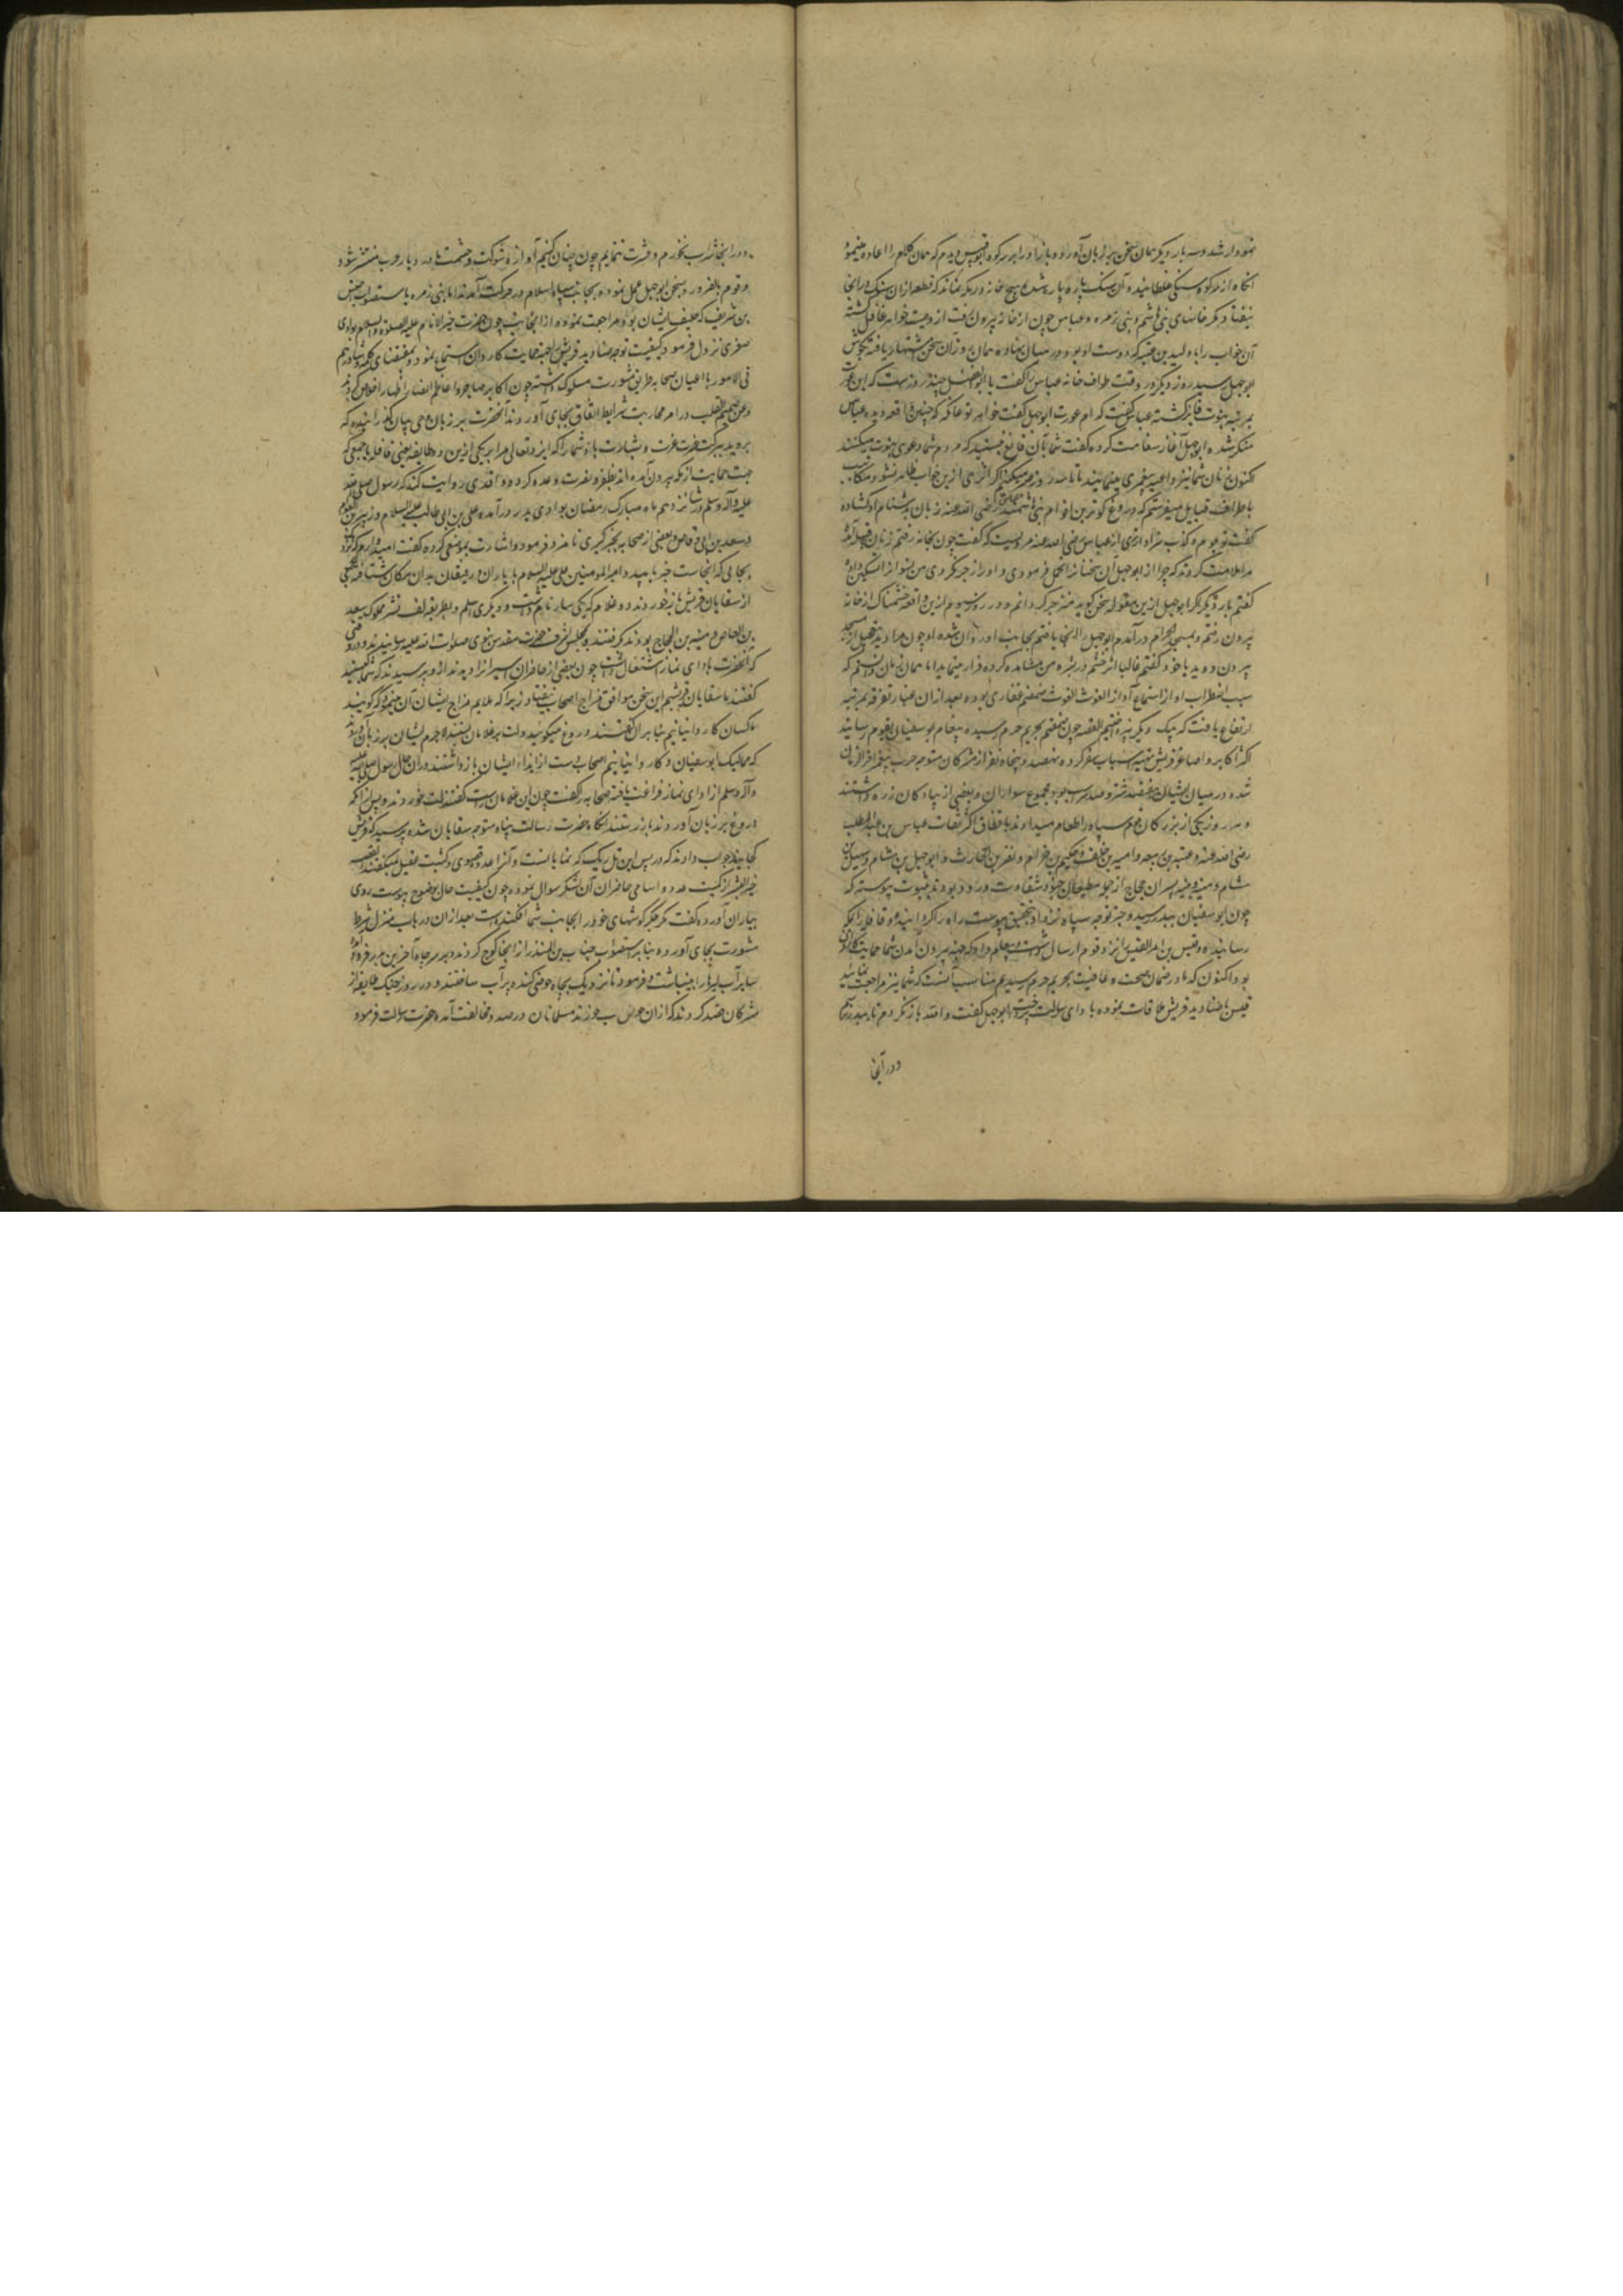 نمودار شد و سه بار دیگر همان سخن بر زبان آورد و باز او را بر سر کوه ابوقبیس دیدم که همان کلام را اعاده مینمود
آنگاه از سر کوه سنگی غلطانید و آن سنگ پاره پاره شده هیچ خانه در مکه نماند که قطعه از آن سنگ در آنجا
نیفتاد مگر خانهای بنی هاشم و بنی زهره و عباس چون از خانه بیرون رفت از وصیت خواهر غافل گشته
آن خواب را با ولید بن عتبه که دوست او بود در میان نهاد و همان روز آن سخن اشتهار یافته بگوش
ابوجهل رسید روز دیگر در وقت طواف خانه عباس را گفت یا ابوالفضل چند روزست که این عورت
بمرتبه نبوت فایز گشته عباس گفت کدام عورت ابوجهل گفت خواهر تو عاتکه که چنین واقعه دیده عباس
منکر شده ابوجهل آغاز سفاهت کرده گفت شما بآن قانع نیستید که مردم شما دعوی نبوت میکنند
اکنون زنان شما نیز داعیه پیغمبری مینمایند تا سه روز صبر میکنم اگر اثری از این خواب ظاهر نشود
باطراف قبایل میفرستم که دروغ گوترین اقوام بنی هاشمند عباس رضی الله عنه زبان بدشنام او گشاده
گفت تو بدروغ و کذب سزاوارتری از عباس رضی الله عنه مرویست که گفت چون بخانه رفتم زنان قبیله
مرا ملامت کردند که چرا از ابوجهل آن سخنان را تحمل فرمودی و او را زجر نکردی من نسوان را تسکین داده
گفتم بار دیگر اگر ابوجهل ازین مقوله سخن گوید منزجر گردانم و در روز سیوم ازین واقعه خشمناک از خانه
بیرون رفتم و بمسجد الحرام درآمدم و ابوجهل را آنجا یافتم بجانب او روان شده او چون مرا دید بتعجیل از مسجد
بیرون دوید با خود گفتم غالبا اثر خشم در بشره من مشاهده کرده فرار مینماید اما همان زمان دانستم که
سبب اضطراب او از استماع آواز الغوث الغوث ضمضم غفاری بوده بعد از آن غبار تفرقه بمرتبه
ارتفاع یافت که یک دیگر را القصه چون ضمضم بحریم حرم رسیده پیغام ابوسفیان بقوم رسانید
اکثر اکابر و اصاغر قریش تهیه اسباب سفر کرده نهصد و پنجاه نفر از مشرکان متوجه حرب پیغمبر آخر الزمان
شده در میان ایشان هفتصد شتر و صد اسب بود و مجموع سواران و بعضی از پیادگان زره داشتند
و هر روز یکی از بزرگان قوم سپاه را طعام میدادند باتفاق اکثر ثقات عباس بن عبدالمطلب
رضی الله عنه و عتبه بن ربیعه و امیه بن خلف و حکیم بن حزام و نضر بن الحارث و ابوجهل بن هشام و سهیل بن
هشام و منبه و نبیه پسران حجاج از جمله مطعمان جنود شقاوت ورود بودند بثبوت پیوسته که
چون ابوسفیان ببدر رسید و خبر توجه سپاه نزد او بتحقیق پیوست راه را گردانید و قافله را بمکه
رسانید و قیس بن امرالقیس را نزد قوم ارسال داشت و پیغام داد که چون بیرون آمدن شما حمایت کاروان
بود اکنون که ما در ضمان صحت و عافیت بحریم حرم رسیدیم مناسب آنست که شما نیز مراجعت نمایید
قیس با صنادید قریش ملاقات نموده بادای رسالت پرداخت ابوجهل گفت والله باز نگردم تا ببدر نرسم
و در آنجا
و در آنجا شراب نخورم و عشرت ننمایم چون چنان کنیم آوازه شوکت و حشمت ما در دیار عرب منتشر شود
و قوم بالضرور بسخن ابوجهل عمل نموده بجانب سپاه اسلام در حرکت آمدند اما بنی زهره باستصواب اخنس
بن شریق که حلیف ایشان بود مراجعت نموده و از آنجانب چون حضرت خیر الانام علیه الصلوة والسلام بوادی
صفری نزول فرمود کیفیت توجه صنادید قریش را بجهت حمایت کاروان استماع نمود و بمقتضای کلمه شاورهم
فی الامور با اعیان صحابه طریق مشورت مسلوک داشته چون اکابر مهاجر و اعاظم انصار اظهار اخلاص کردند
و عن صمیم القلب در امر محاربت شرایط اتفاق بجای آوردند آنحضرت بر زبان وحی بیان گذرانیدند که
بروید ببرکت حضرت عزت و بشارت باد شما را که ایزد تعالی مرا بر یکی ازین دو طایفه یعنی قافله یا جمعی که
جهت حمایت از مکه بیرون آمده اند بظفر و نصرت وعده کرده و واقدی روایت کند که رسول صلی الله
علیه و آله وسلم شانزدهم ماه مبارک رمضان بوادی بدر درآمده علی بن ابی طالب علیه السلام و زبیر بن العوام
و سعد بن ابی وقاص و بعضی از صحابه بخبرگیری نامزد فرمود و اشارت بموضعی کرده گفت امیدوارم که نزد
چاهی که آنجاست خبر یابید و امیرالمومنین علی علیه السلام با یاران و رفیقان بدان مکان شتافته بجمعی
از سقایان قریش باز خوردند و دو غلام که یکی یسار نام داشت و دیگری اسلم و بطریق لف نشر مملوک سعید
بن العاص و منبه بن الحجاج بودند گرفتند و بمجلس اشرف حضرت مقدس نبوی صلوات الله علیه رسانیدند در وقتی
که آنحضرت بادای نماز اشتغال داشت چون بعضی از حاضران اسیران را دیدند از او پرسیدند که شما کیستید
گفتند ما سقایان قریشیم این سخن موافق مزاج اصحاب نیفتاد زیرا که ملایم مزاج ایشان آن مینمود که گویند
ما کسان کاروانیانیم بنا بر آن گفتند دروغ میگوئید و لت بر غلامان بستند لاجرم ایشان بر زبان آوردند
که ممالیک ابوسفیان و کاروانیانیم اصحاب دست از ایذاء ایشان باز داشتند در آن حال رسول صلی الله علیه
و آله وسلم از ادای نماز فراغت یافته صحابه را گفت چون این غلامان راست گفتند لت خوردند و پس از آنکه
دروغ بر زبان آوردند باز رستند آنگاه حضرت رسالت پناه متوجه سقایان شده پرسید که قریش
کجایند جواب دادند که در پس این تل ریگ که نمایانست و آنرا عدوه قصوی و کثیب عقنقل میگفتند القصه
خیر البشر از کمیت عدد و اسامی حاضران آن لشکر سوال نموده چون کیفیت حال بوضوح پیوست روی
بیاران آورده گفت که مکه جگرگوشهای خود را بجانب شما افکنده است بعد از آن در باب منزل شرط
مشورت بجای آورده بنا بر استصواب حباب بن المنذر از آنجا کوچ کردند و بر سر چاه آخرین بدر فرود آمده
سایر آب ها را بینباشت و فرمود تا نزدیک بچاه حوضی کنده پر آب ساختند و در روز جنگ طایفه از
مشرکان قصد کردند که از آن حوض آب خورند مسلمانان در صدد مخالفت آمده حضرت رسالت فرمود